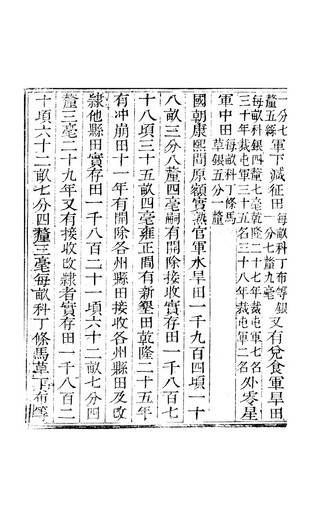 一分七
釐五絲軍下減征田每畝科丁布等銀
一分七釐九毫又有兌食軍旱田
每畝科銀四釐七毫乾隆二十七年裁屯軍七名
三十年裁屯軍三十五名三十八年裁屯軍二名外零星
軍中田每畝科丁條馬
草銀五分一釐
國朝康熙間原額實熟官軍水旱田一千九百四頃一十
八畝三分八釐四毫嗣有開除接收實存田一千八百七
十八頃三十五畝四毫雍正間有新墾田乾隆二十五年
有冲崩田十一年有開除各州縣田接收各州縣田及改
隸他縣田實存田一千八百二十一頃六十二畝七分四
釐三毫二十九年又有接收改隸者實存田一千八百二
十頃六十二畝七分四釐三毫每畝科丁條馬草丁布等